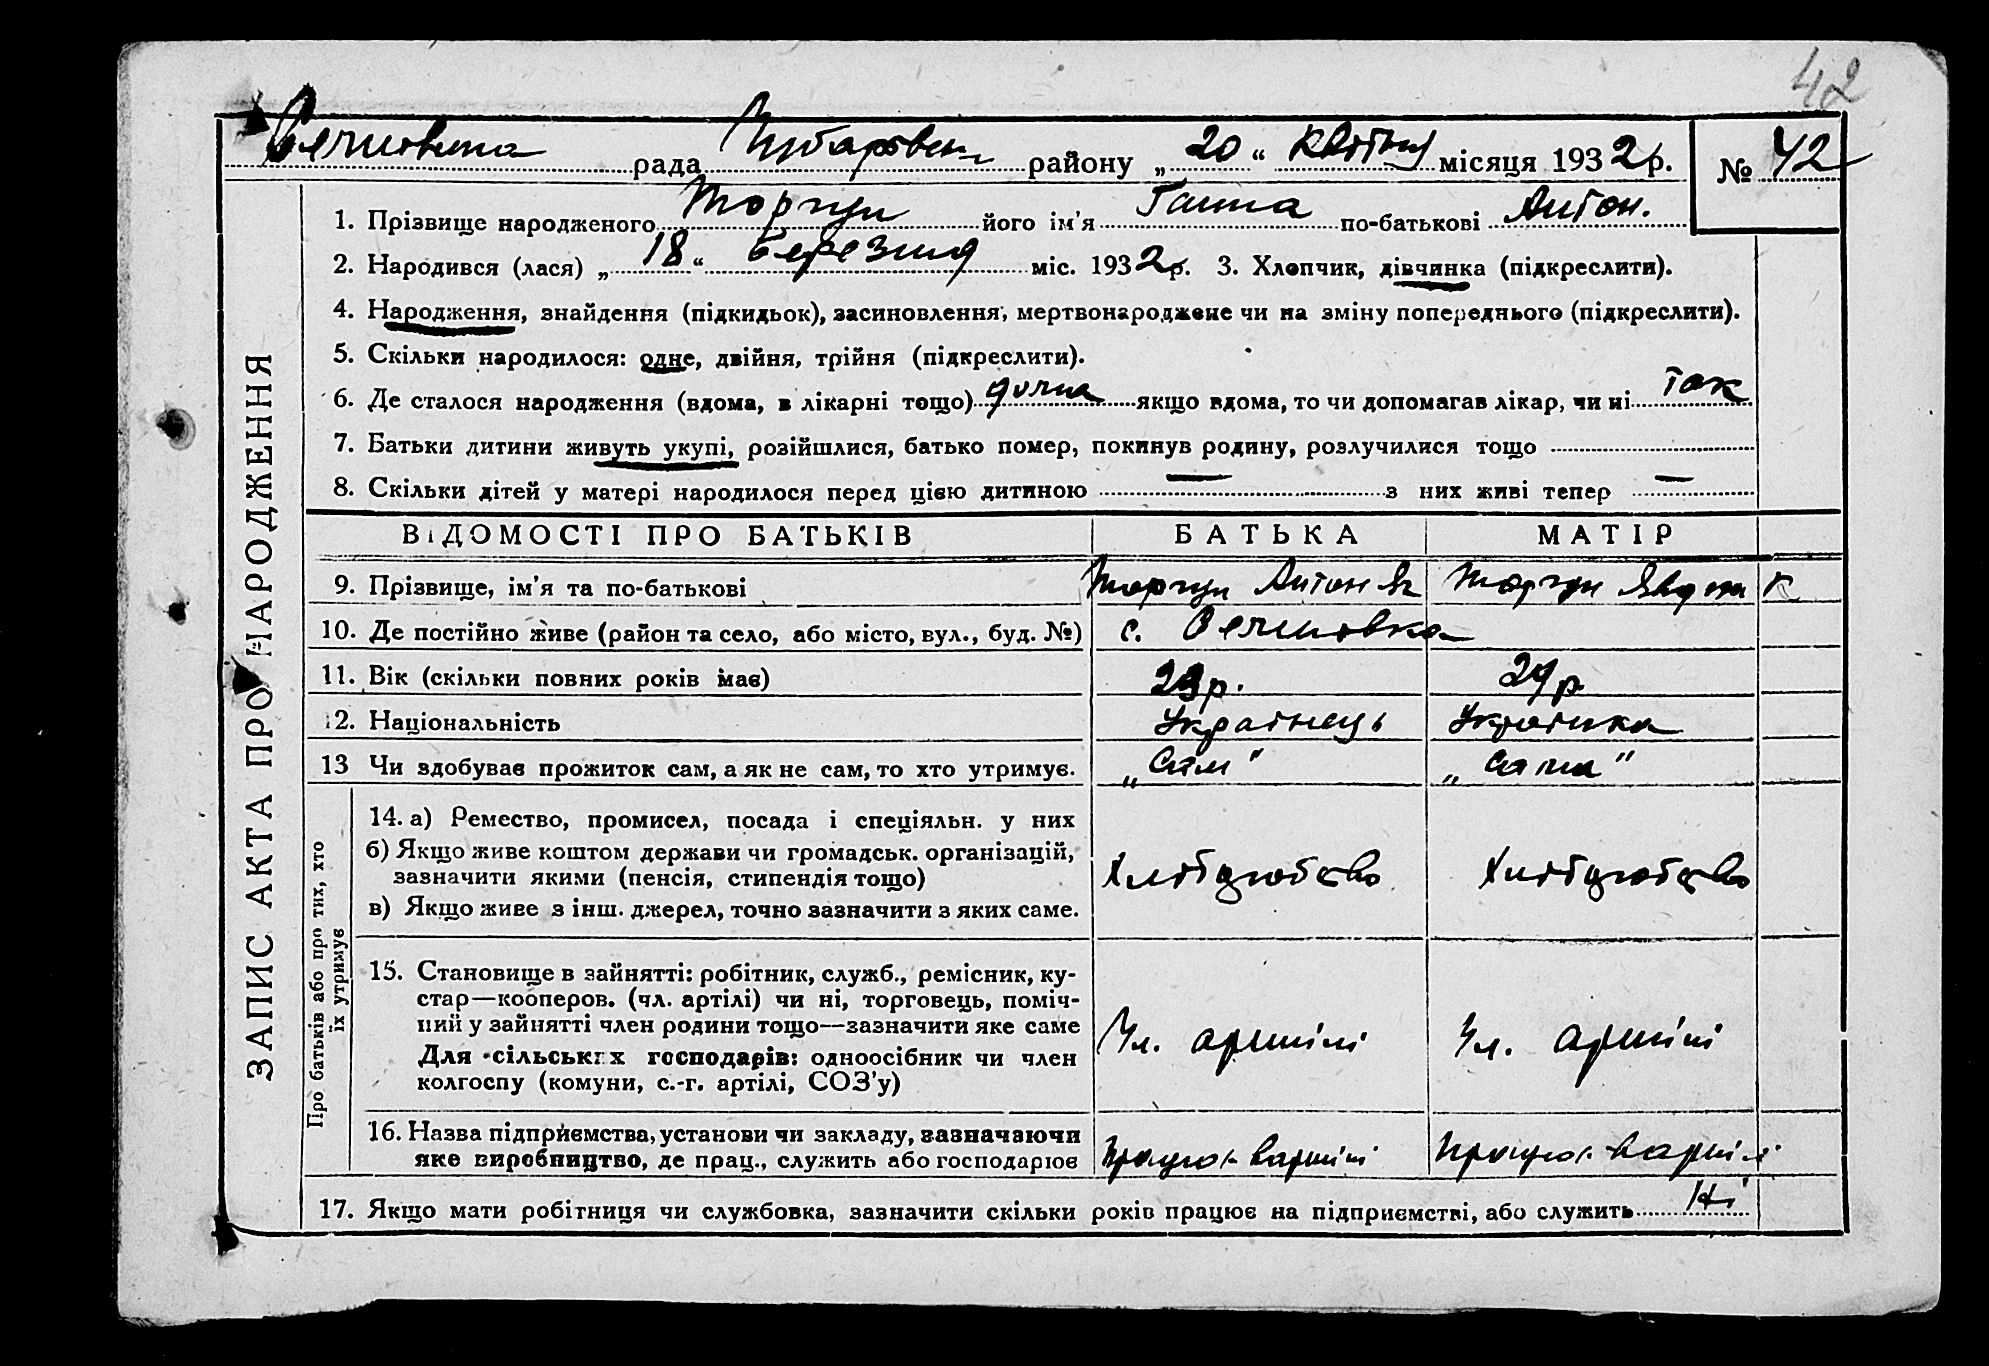 42
рада Чубаровск району „20“ квітня місяця 1932 р. № 42
1. Прізвище народженого Торчун його ім'я Ганна по-батькові Антон.
2. Народився (лася) „18“ березня міс. 1932 р. 3. Хлопчик, дівчинка (підкреслити).
4. Народження, знайдення (підкидьок), засиновлення, мертвонароджене чи на зміну попереднього (підкреслити).
5. Скільки народилося: одне, двійня, трійня (підкреслити).
6. Де сталося народження (вдома, в лікарні тощо) дома якщо вдома, то чи допомагав лікар, чи ні так
7. Батьки дитини живуть укупі, розійшлися, батько помер, покинув родину, розлучилися тощо
8. Скільки дітей у матері народилося перед цією дитиною — з них живі тепер —
ВІДОМОСТІ ПРО БАТЬКІВ БАТЬКА МАТІР
9. Прізвище, ім'я та по-батькові Торчун Антон Як Торчун Явдоха К
10. Де постійно живе (район та село, або місто, вул., буд. №) с.
11. Вік (скільки повних років має) 23 р. 24 р
12. Національність Українець Українка
13 Чи здобуває прожиток сам, а як не сам, то хто утримує. „Сам" „Сама"
14. а) Ремество, промисел, посада і спеціяльн. у них
б) Якщо живе коштом держави чи громадськ. організацій,
зазначити якими (пенсія, стипендія тощо) Хлібороբство Хліборобство
в) Якщо живе з інш. джерел, точно зазначити з яких саме.
15. Становище в зайнятті: робітник, служб., ремісник, ку-
стар—кооперов. (чл. артілі) чи ні, торговець, поміч-
ний у зайнятті член родини тощо—зазначити яке саме Чл. артілі Чл. артілі
Для сільських господарів: одноосібник чи член
колгоспу (комуни, с.-г. артілі, СОЗ'у)
16. Назва підприємства, установи чи закладу, зазначаючи
яке виробництво, де прац., служить або господарює Працює в артілі Працює в артілі
17. Якщо мати робітниця чи службовка, зазначити скільки років працює на підприємстві, або служить Ні
ЗАПИС АКТА ПРО НАРОДЖЕННЯ
Про батьків або про тих, хто
їх утримує